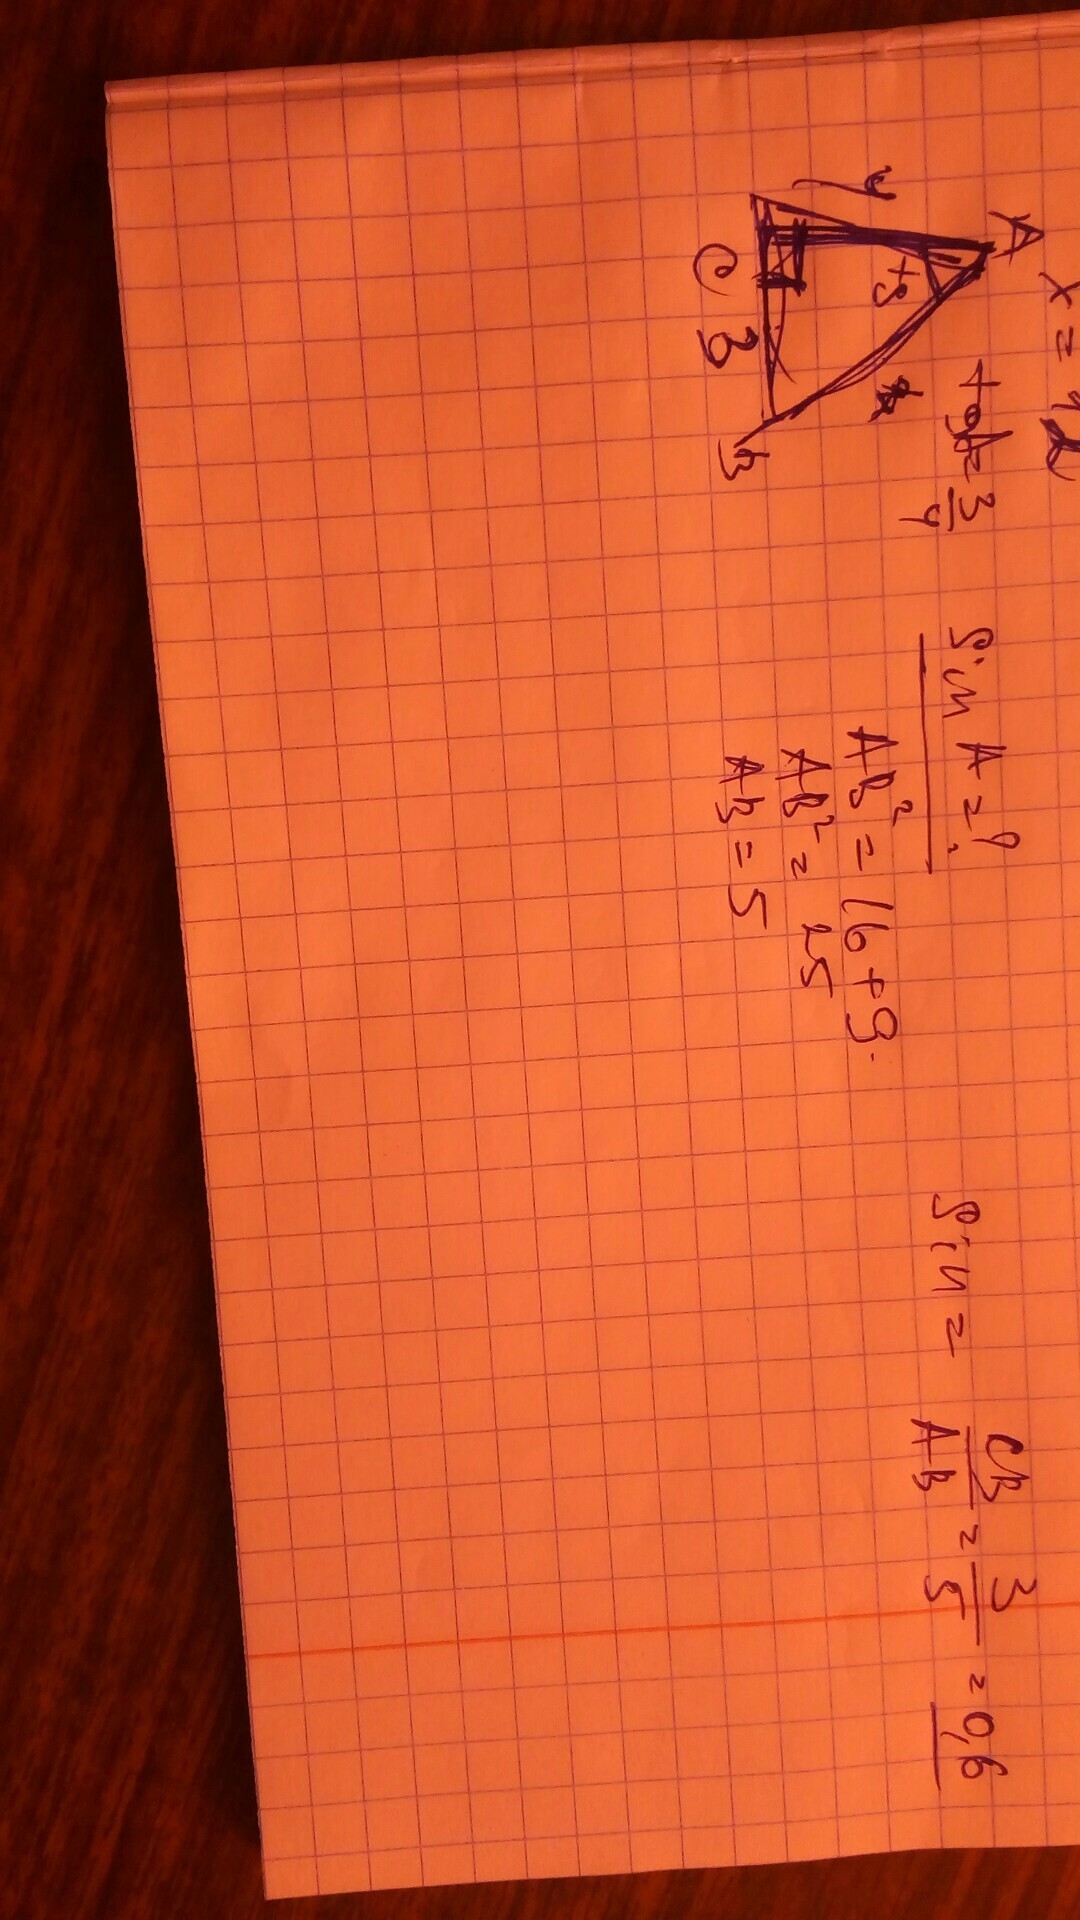 x = 12
A
4
tg
C
3
B
tgA=3/4
Sin A = ?
AB² = 16 + 9.
AB² = 25
AB = 5
Sin = CB/AB = 3/5 = 0,6